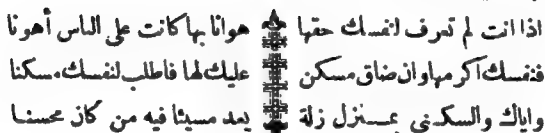 اذا انت لم تعرف لنفسك حقها هوانا بها كانت على الناس أهونا
فنفسك اكرمها وان ضاق مسكن عليك لها فاطلب لنفسك مسكنا
واياك والسكنى بمنزل زلة يعد مسيئا فيه من كان محسنا